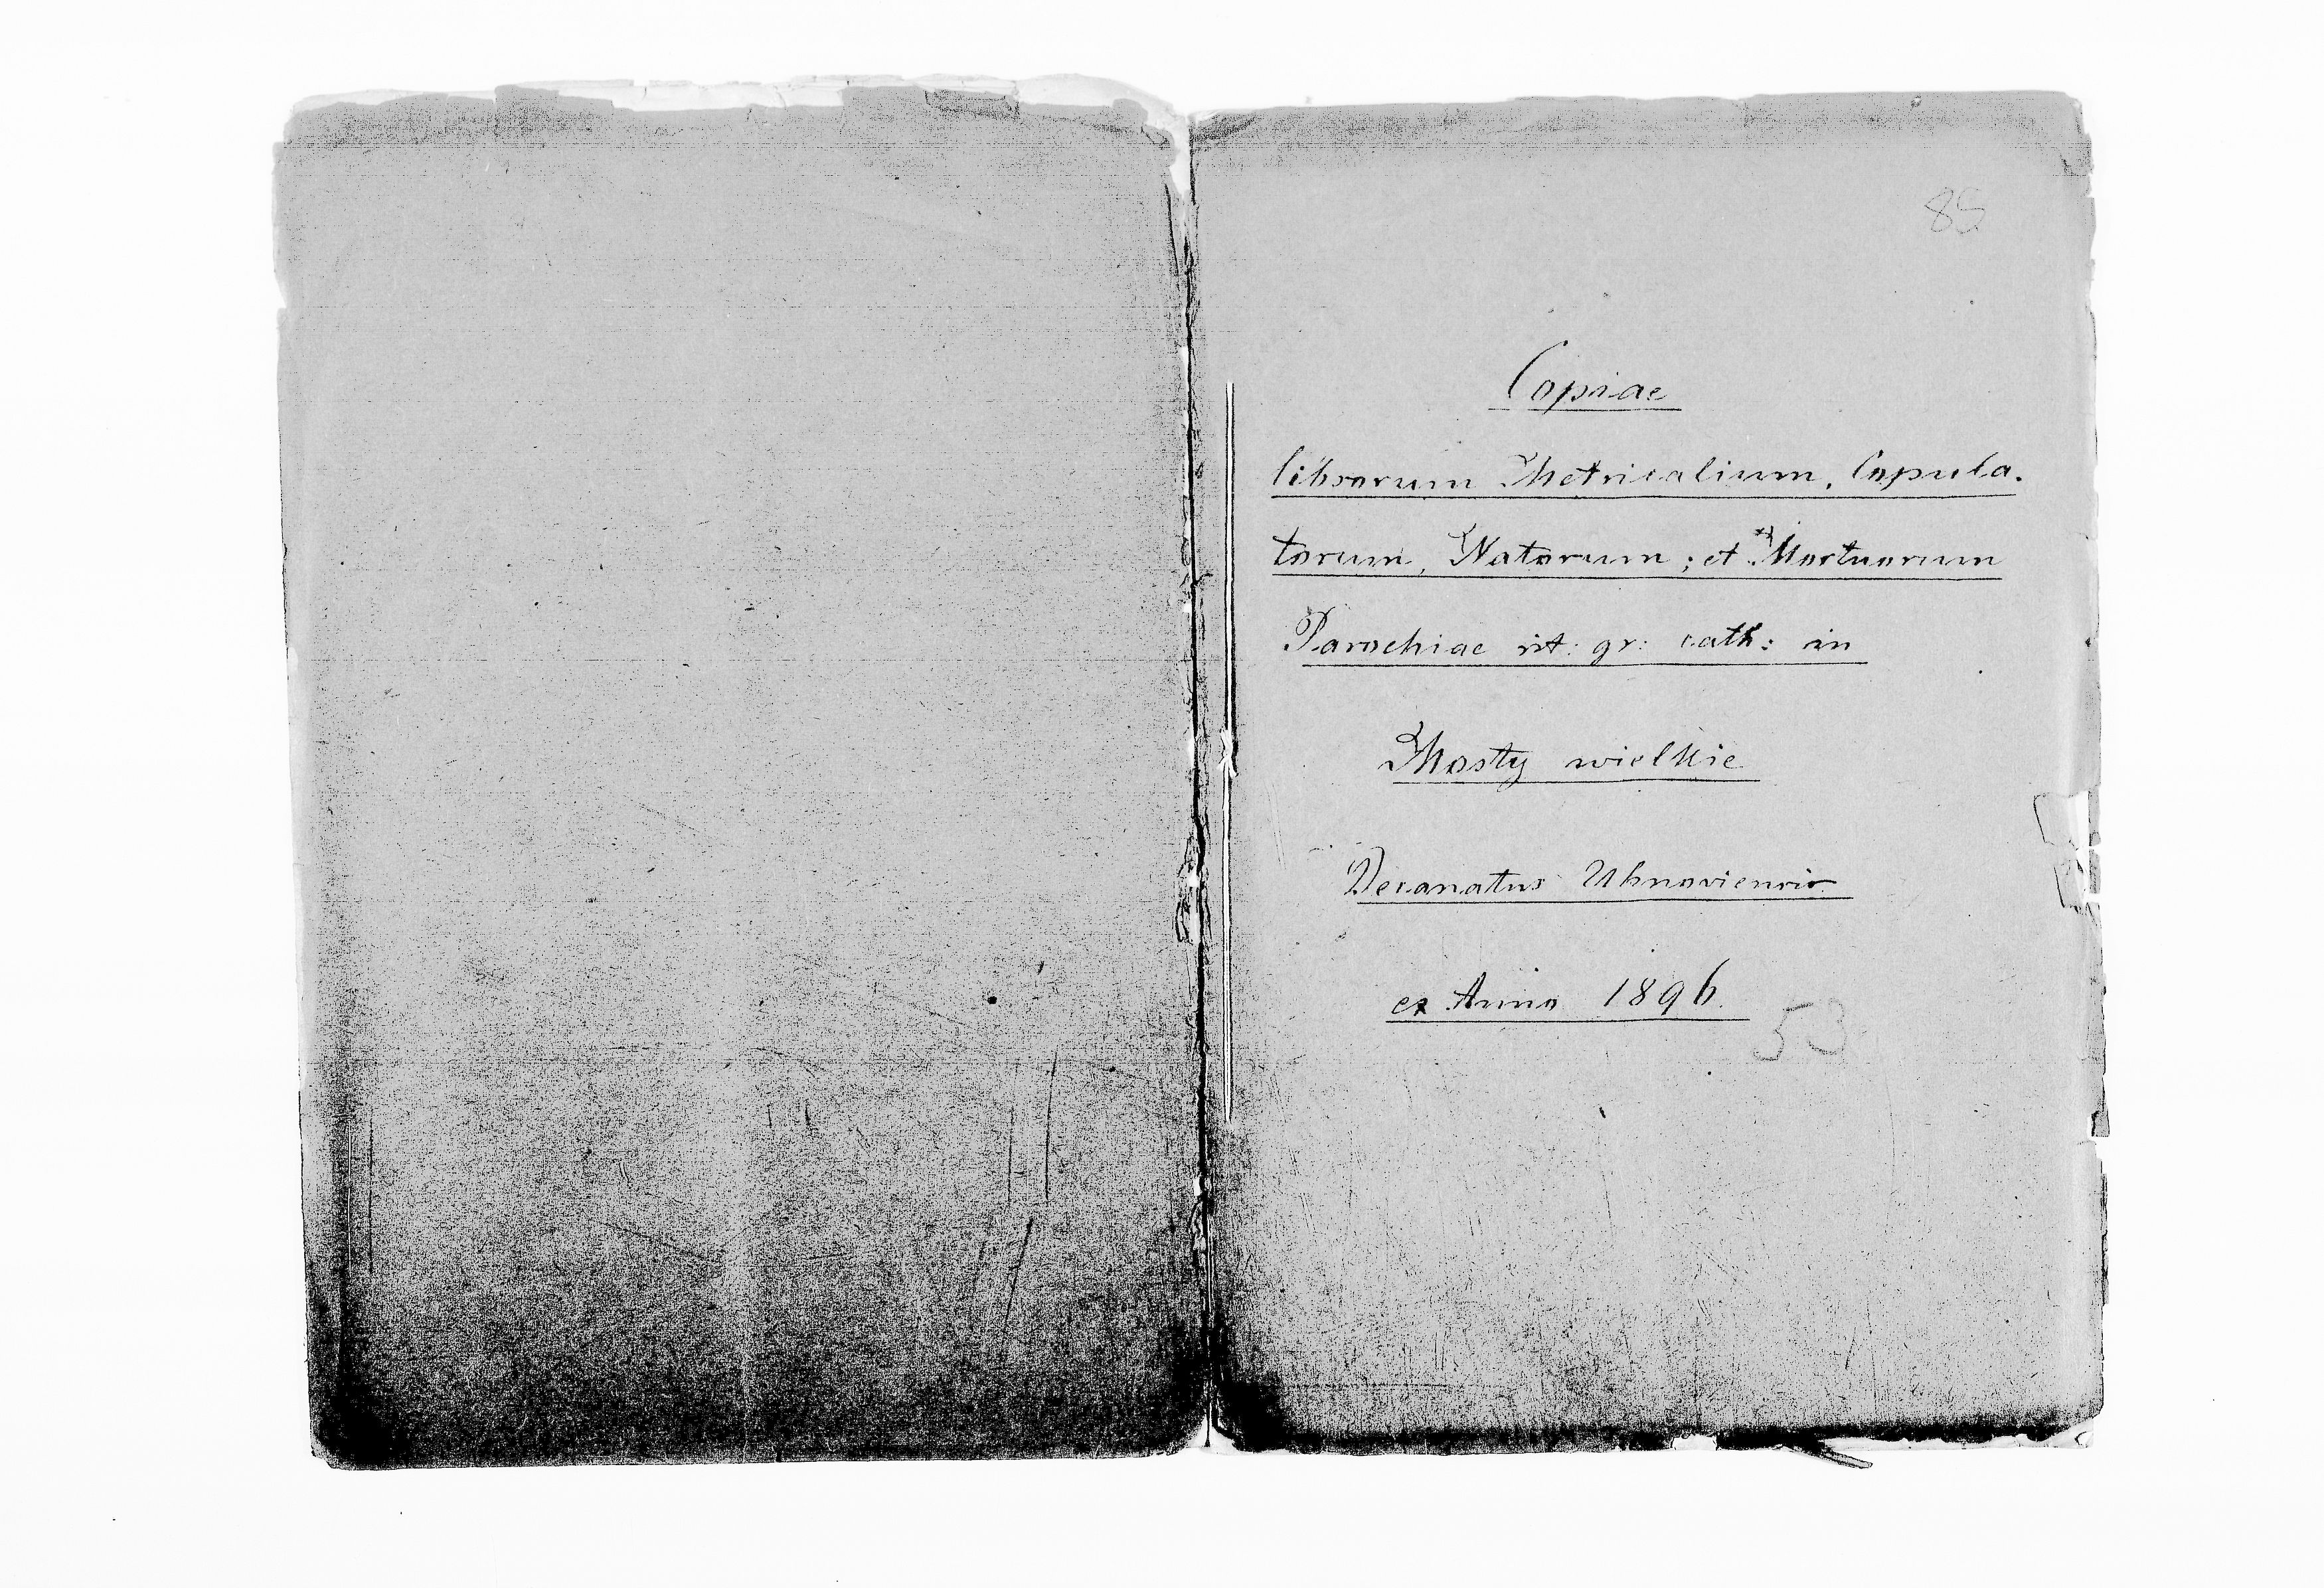 85
Copiae
librorum Metricalium, Copula-
torum, Natorum; et Mortuorum
Parochiae rit: gr: cath: in
Mosty wielkie
Decanatus Uhnoviensis
ex Anno 1896.
53